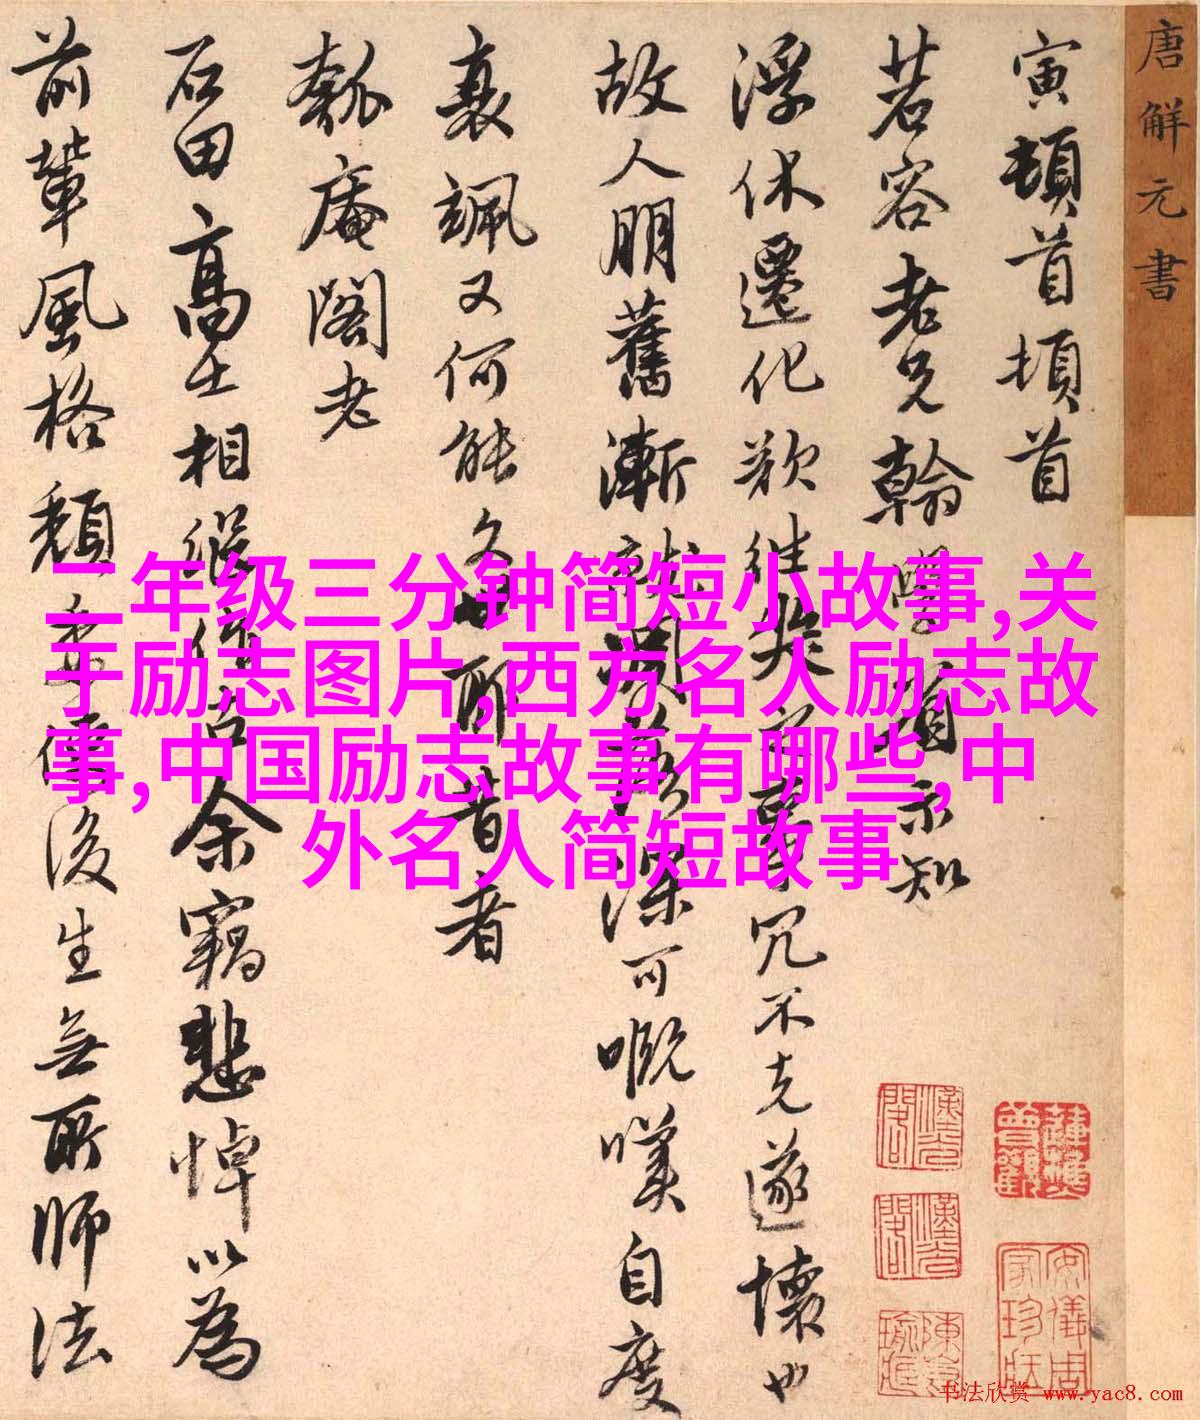 唐解元書
寅頓首頓首
茗容老兄翰
浮休遷化欲往
冗不克遂懷也
故人朋舊漸
深可嘅嘆自度
衰颯又何能久
耶昔者
瓠庵閣老
石田高士相繼
余竊悲悼以為
前輩風格頹
後生無所師法
二年级三分钟简短小故事,关
于励志图片,西方名人励志故
事,中国励志故事有哪些,中
外名人简短故事
书法欣赏 www.yac8.com